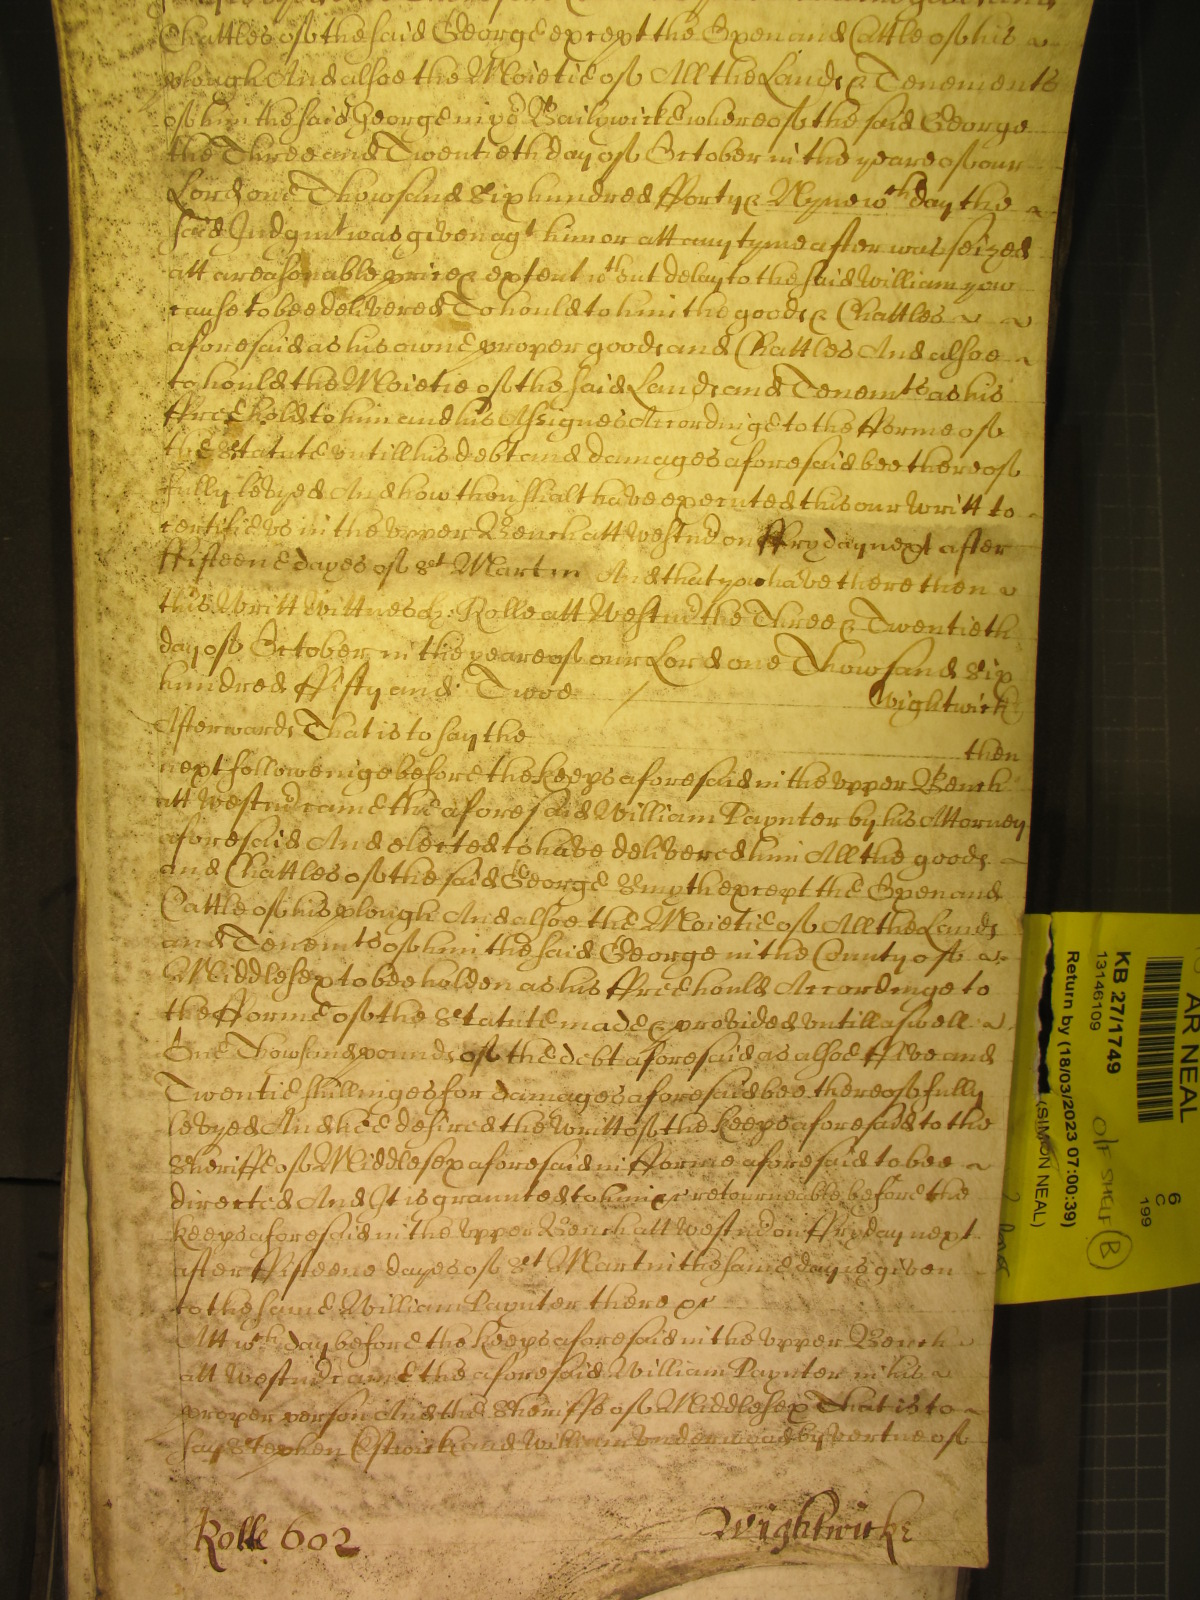 Chattles of the said George except the Oxen and Cattle of his
plough And alsoe the Moietie of All the Lands & Tenements
of him the said George in yor Bailywicke whereof the said George
the Three and Twentieth day of October in the yeare of our
Lord one Thowsand Six hundred fforty & Nyne wch day the
said Judgmt was given agt him or att any tyme after was seized
att a reasonable price & extent wthout delay to the said William yow
cause to bee delivered To hould to him the goods & Chattles
aforesaid as his owne proper goods and Chattles And alsoe
to hould the Moietie of the said Lands and Tenemts as his
ffreehold to him and his Assignes Accordinge to the fforme of
the Statute untill his debt and damages aforesaid bee thereof
fully levyed And how thou shalt have executed this our Writt to
certifie us in the upper Bench att Westmr on ffryday next after
ffifteene dayes of St Martin And that yow have there then
this Writt Wittnes H: Rolle att Westmr the Three & Twentieth
day of October in the yeare of our Lord one Thowsand Six
hundred ffifty and Twoe Wightwick
Afterwards That is to say the then
next followeinge before the keeps aforesaid in the upper Bench
att Westmr came the aforesaid William Paynter by his Attorney
aforesaid And elected to have delivered him All the goods
and Chattles of the said George Smyth except the Oxen and
Cattle of his plough And alsoe the Moietie of All the Lands
and Tenemts of him the said George in the County of
Middlesex to bee holden as his ffreehould Accordinge to
the fforme of the Statute made & provided untill aswell
One Thowsand pounds of the debt aforesaid as alsoe ffive and
Twentie shillinges for damages aforesaid bee thereof fully
levyed And hee desired the writt of the keeps aforesaid to the
Sheriffe of Middlesex aforesaid in fforme aforesaid to bee
directed And It is graunted to him &c retourneable before the
keeps aforesaid in the Upper Bench att Westmr on ffryday next
after ffifteene dayes of St Martin the same day is given
to the same William Paynter there &c
Att wch day before the keeps aforesaid in the upper Bench
att Westmr came the aforesaid William Paynter in his
proper person And the Sheriffe of Middlesex That is to
say Stephen Estwicke and William Underwood by vertue of
Rolle 602 Wightwicke
AR NEAL
6
C
199
KB 27/1749
13146109
O/F SHELF B
Return by (18/03/2023 07:00:39)
(SIMON NEAL)